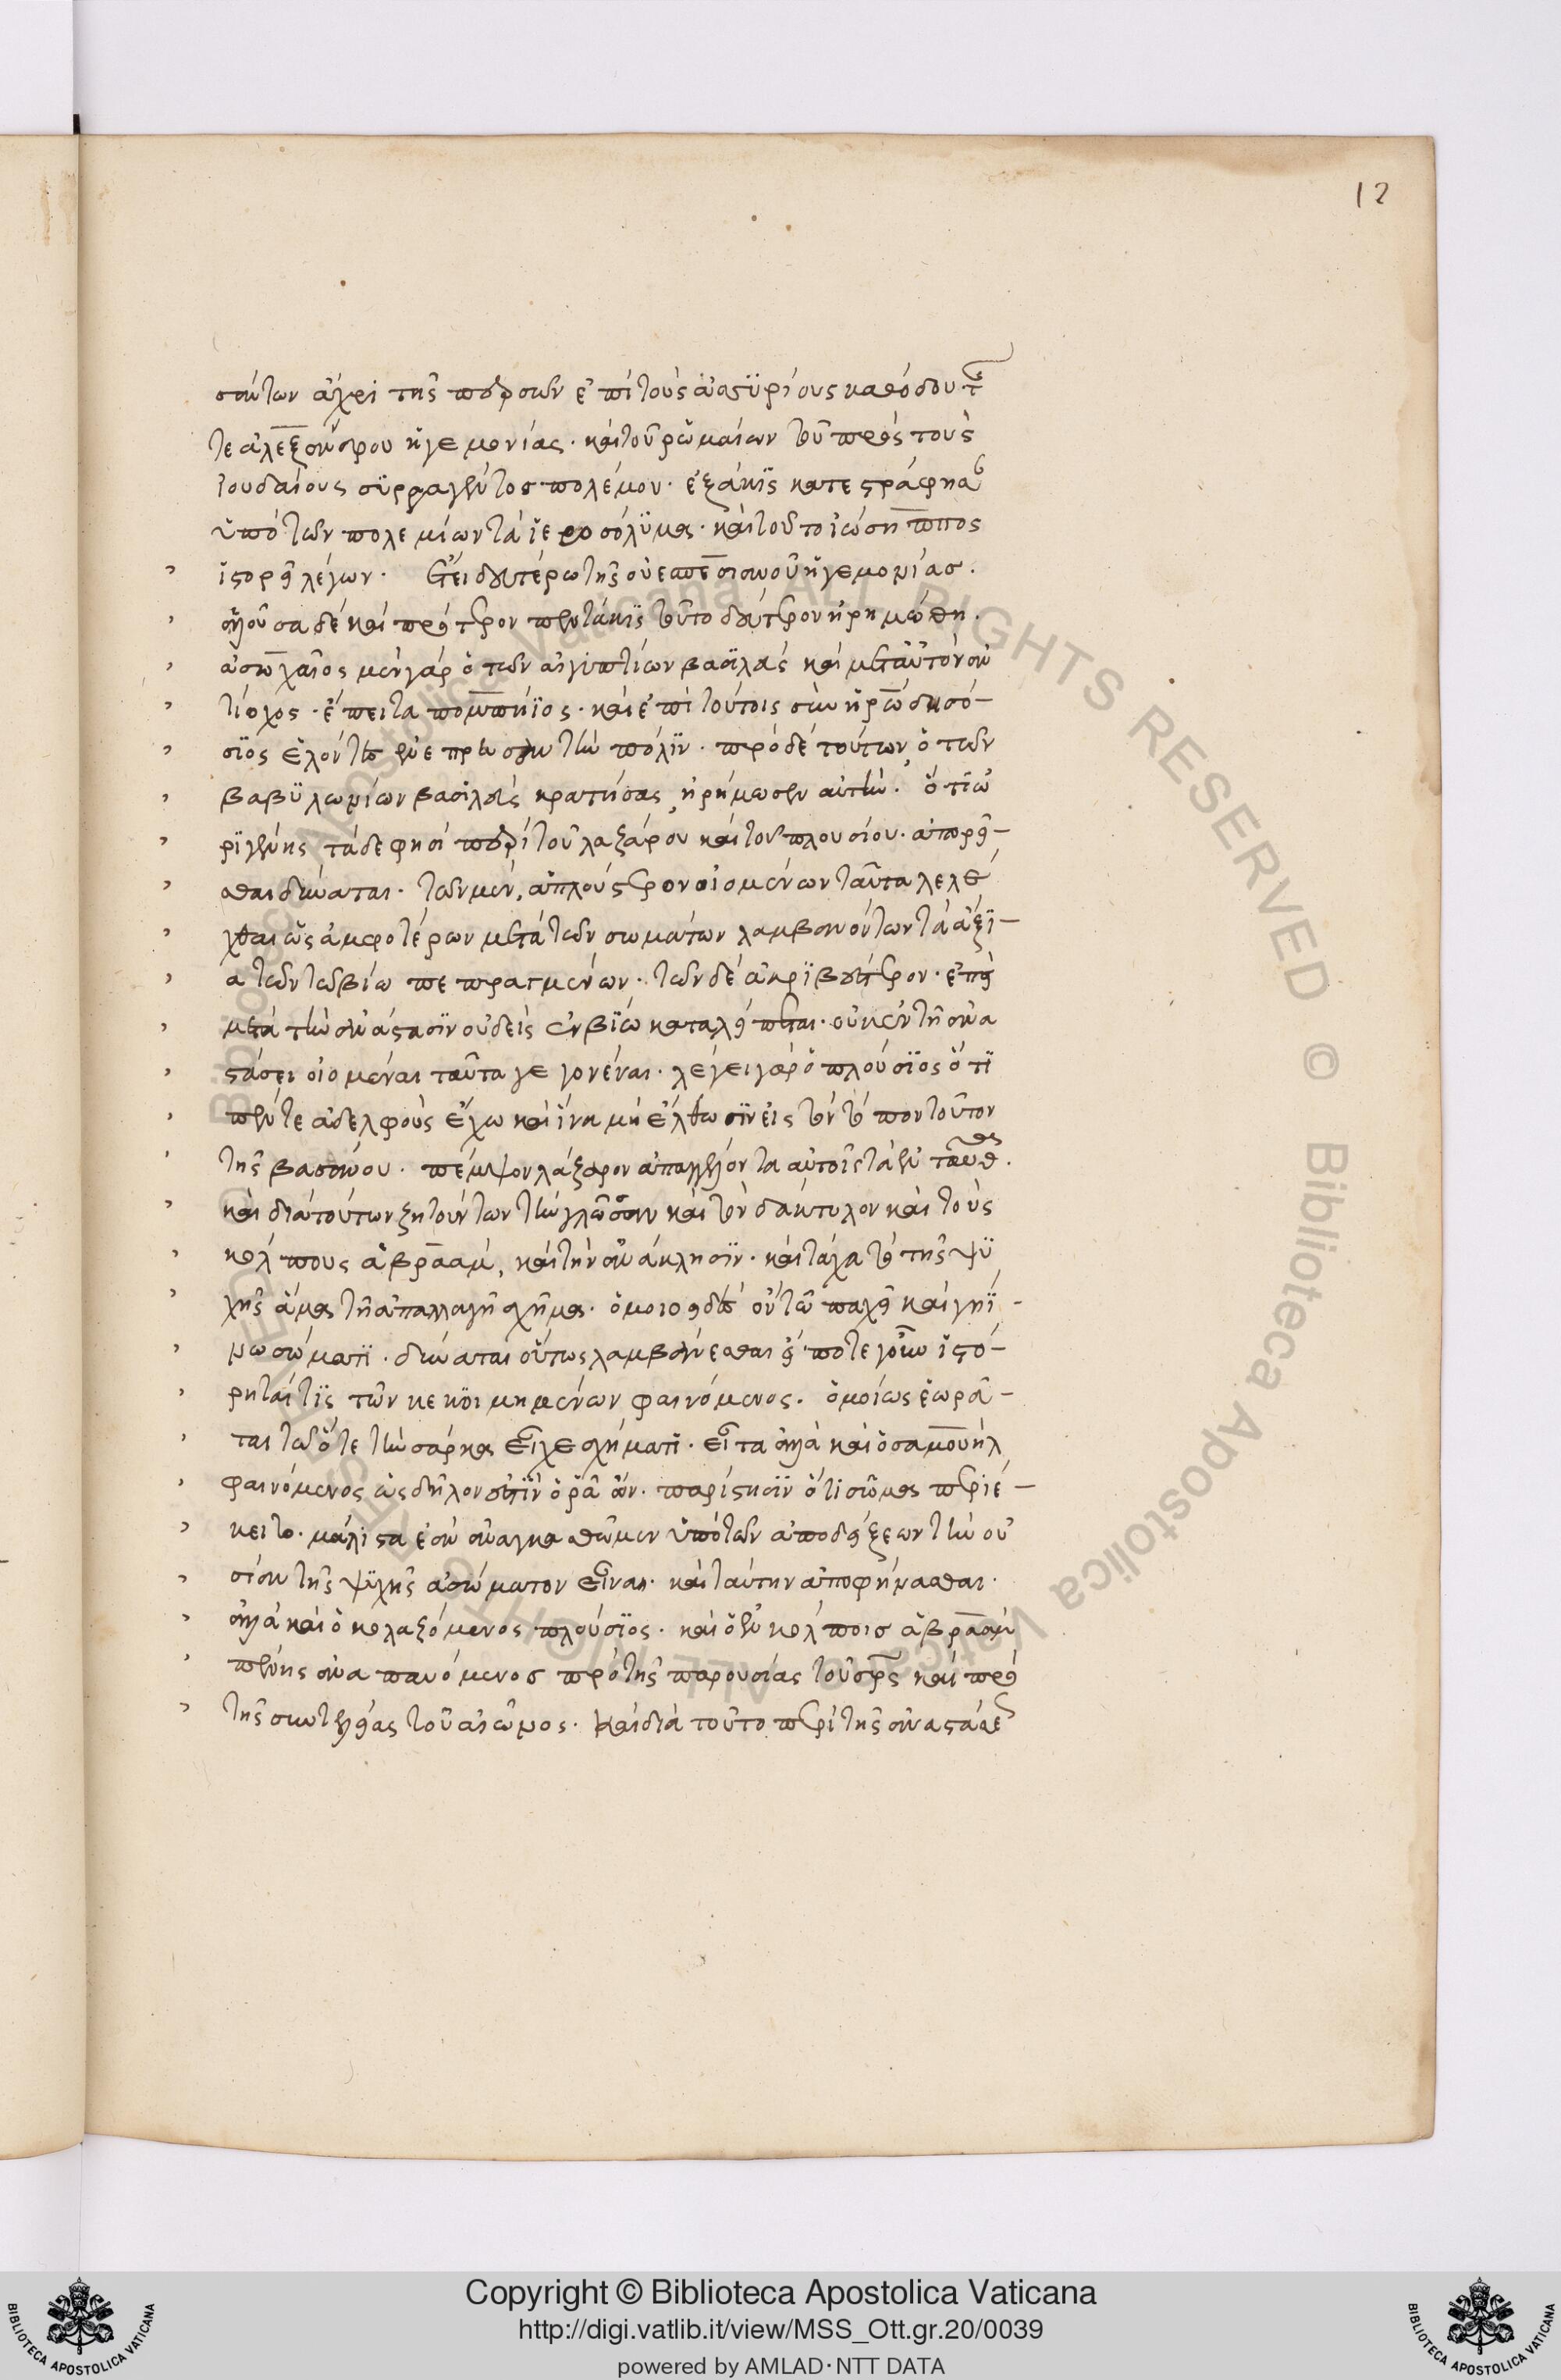 12
σάντων ἄχρι τῆς περσῶν ἐπὶ τοὺς ἀσϋρίους καθόδου τῆς
τε ἀλεξάνδρου ἡγεμονίας. καὶ τοῦ ῥωμαίων τοῦ πρὸς τοὺς
ἰουδαίους συρραγέντος πολέμου. ἑξάκις κατεστράφησαν
ὑπὸ τῶν πολεμίων τὰ ἱεροσόλυμα. καὶ τοῦτο ἰώσηππος
ἱστορεῖ λέγων. ἔτει δευτέρω τῆς οὐεσπεσιανοῦ ἡγεμονίας.
ἁλοῦσα δὲ καὶ πρότερον πεντάκις τοῦτο δεύτερον ἠρημώθη.
ἀσωχαῖος μὲν γὰρ ὁ τῶν αἰγυπτίων βασιλεὺς καὶ μετ' αὐτὸν ἀν
τίοχος. ἔπειτα πομπήϊος. καὶ ἐπὶ τούτοις σὺν ἡρώδη σό-
σιος ἑλόντες ἐτήρησαν τὴν πόλιν. πρὸ δὲ τούτων, ὁ τῶν
βαβυλωνίων βασιλεὺς κρατήσας, ἠρήμωσεν αὐτήν. ὅτι ὠ
ριγένης τάδε φησὶ περὶ τοῦ λαζάρου καὶ τοῦ πλουσίου. ἀπορεῖ-
σθαι δύναται. τῶν μὲν, ἁπλούστερον οἰομένων ταῦτα λελέ
χθαι ὡς ἀμφοτέρων μετὰ τῶν σωμάτων λαμβανόντων τὰ ἄξι-
α τῶν τῶ βίω πεπραγμένων. τῶν δὲ ἀκριβέστερον. ἐπεὶ
μετὰ τὴν ἀνάστασιν οὐδεὶς ἐν βίω καταλείπεται. οὐκ ἐν τῆ ἀνα
στάσει οἰομένων ταῦτα γεγονέναι. λέγει γὰρ ὁ πλούσιος ὅτι
πέντε ἀδελφοὺς ἔχω καὶ ἵνα μὴ ἔλθωσιν εἰς τὸν τόπον τοῦτον
τῆς βασάνου. πέμψον λάζαρον ἀπαγγελοῦντα αὐτοῖς τὰ ἐνταῦθα.
καὶ διὰ τούτων ζητούντων τὴν γλῶσσαν καὶ τὸν δάκτυλον καὶ τοὺς
κόλπους ἀβραάμ, καὶ τὴν ἀνάκλησιν. καὶ τάχα τὸ τῆς ψυ
χῆς ἅμα τῆ ἀπαλλαγῆ σχῆμα. ὁμοιοειδὲς ὂν τῶ παχεῖ καὶ γηΐ-
νω σώματι. δύναται οὕτως λαμβάνεσθαι εἴ ποτε γοῦν ἱστό-
ρηταί τις τῶν κεκοιμημένων φαινόμενος. ὁμοίως ἑώρα-
ται τῶ ὅτε τὴν σάρκα εἶχε σχήματι. εἶτα ἀλλὰ καὶ ὁ σαμουὴλ
φαινόμενος ὡς δῆλον ἐστὶν ὁρατὸς ὤν. παρίστησιν ὅτι σῶμα περιέ-
κειτο. μάλιστα ἐὰν ἀναγκασθῶμεν ὑπὸ τῶν ἀποδείξεων τὴν οὐ
σίαν τῆς ψυχῆς ἀσώματον εἶναι. καὶ ταύτην ἀποφήνασθαι.
ἀλλὰ καὶ ὁ κολαζόμενος πλούσιος. καὶ ὁ ἐν κόλποις ἀβραὰμ
πένης ἀναπαυόμενος πρὸ τῆς παρουσίας τοῦ σρς καὶ πρὸ
τῆς συντελείας τοῦ αἰῶνος. καὶ διὰ τοῦτο περὶ τῆς ἀναστάσεως
Copyright © Biblioteca Apostolica Vaticana
http://digi.vatlib.it/view/MSS_Ott.gr.20/0039
powered by AMLAD·NTT DATA